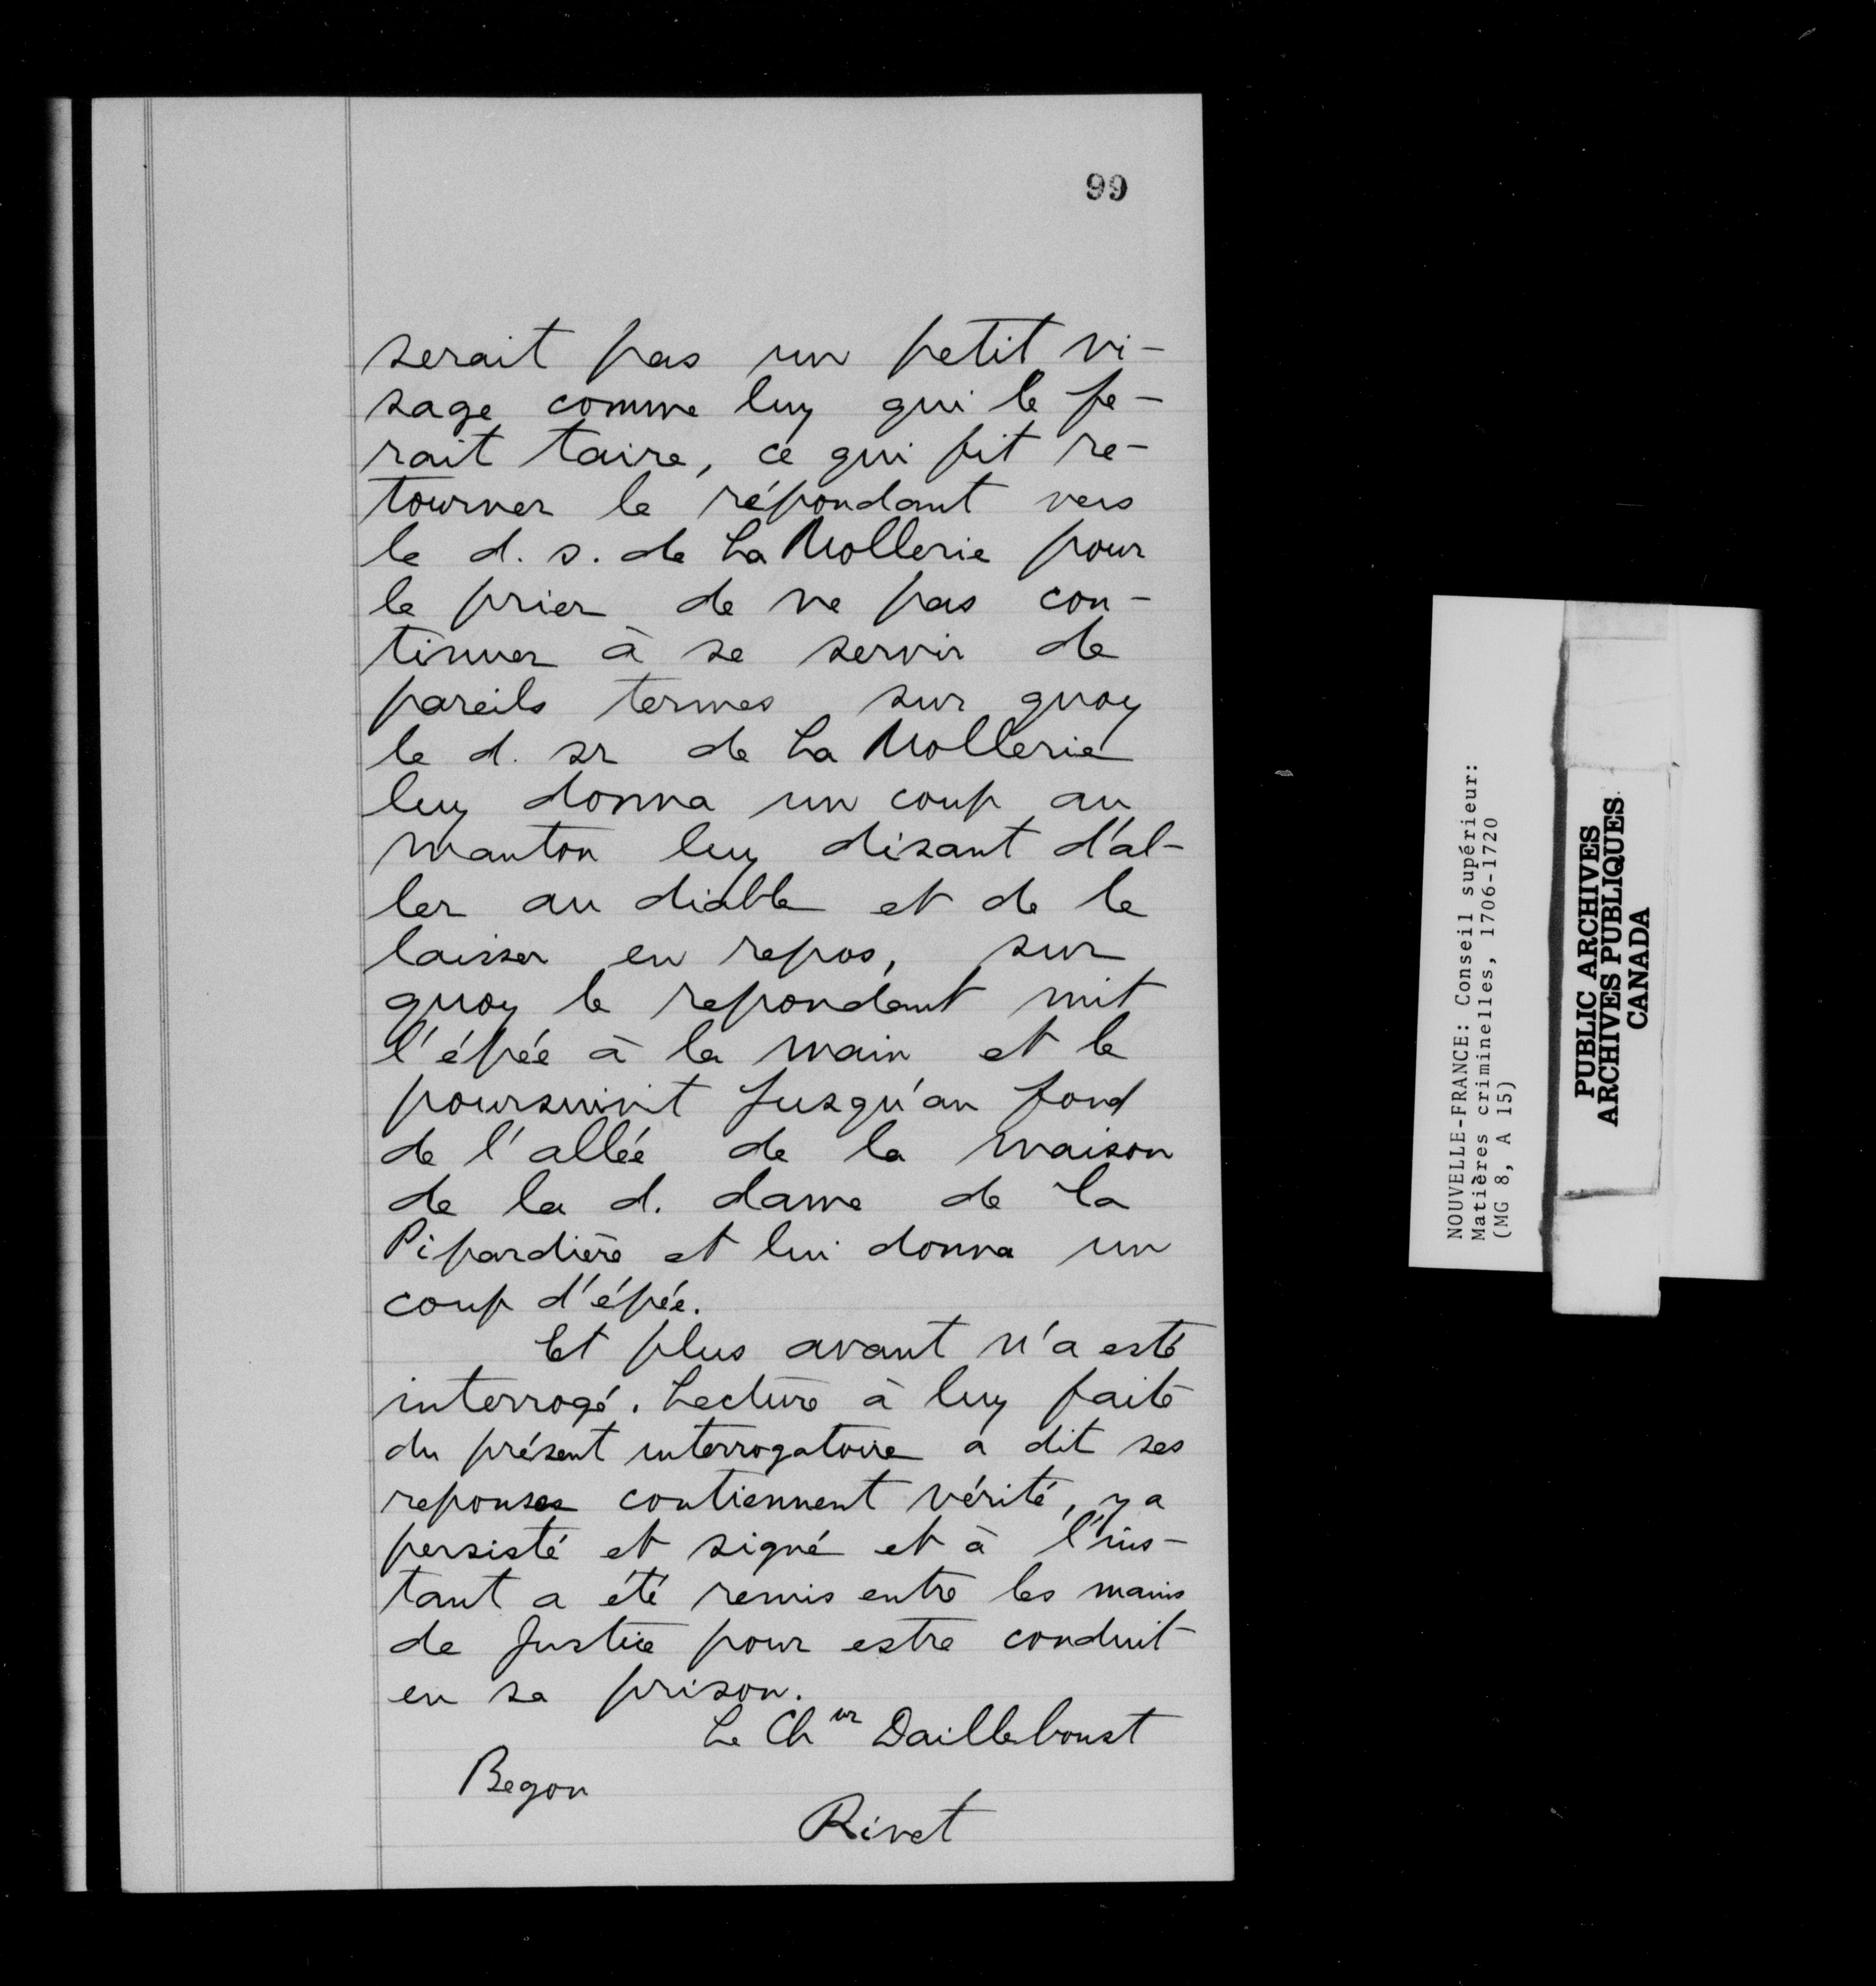 99
serait pas un petit vi-
sage comme luy qui le fe-
rait taire, ce qui fit re-
tourner le répondant vers
le d. s. de La Mollerie pour
le prier de ne pas con-
tinuer à se servir de
pareils termes sur quoy
le d. sr de La Mollerie
luy donna un coup au
manton luy disant d'al-
ler au diable et de le
laisser en repos, sur
quoy le repondant mit
l'épée à la main et le
poursuivit jusqu'au fond
de l'allée de la maison
de la d. dame de la
Pipardière et lui donna un
coup d'épée.
Et plus avant n'a esté
interrogé. Lecture à luy faite
du présent interrogatoire a dit ses
reponses contiennent vérité, y a
persisté et signé et à l'ins-
tant a été remis entre les mains
de Justice pour estre conduit
en sa prison.
Le Ch er Dailleboust
Begon
Rivet
NOUVELLE-FRANCE: Conseil supérieur:
Matières criminelles, 1706-1720
(MG 8, A 15)
PUBLIC ARCHIVES
ARCHIVES PUBLIQUES
CANADA